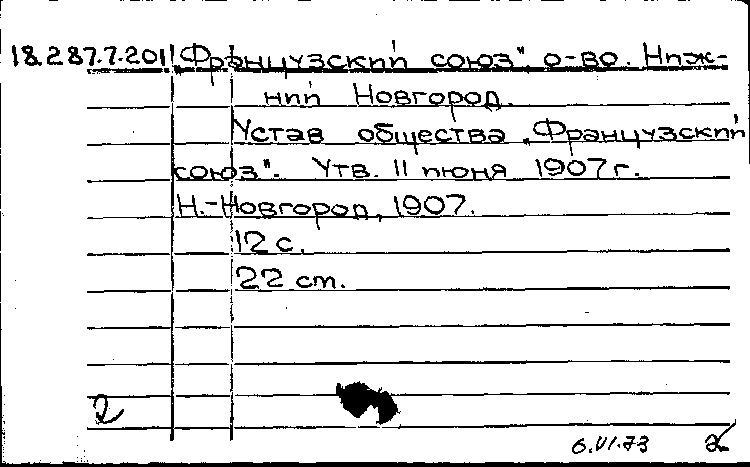 18.287.7.201 „Французский союз", о-во. Ниж-
ний Новгород.
Устав общества „Французский
союз". Утв. 11 июня 1907 г.
Н.-Новгород, 1907.
12 с.
22 cm.
2
6.VI.73